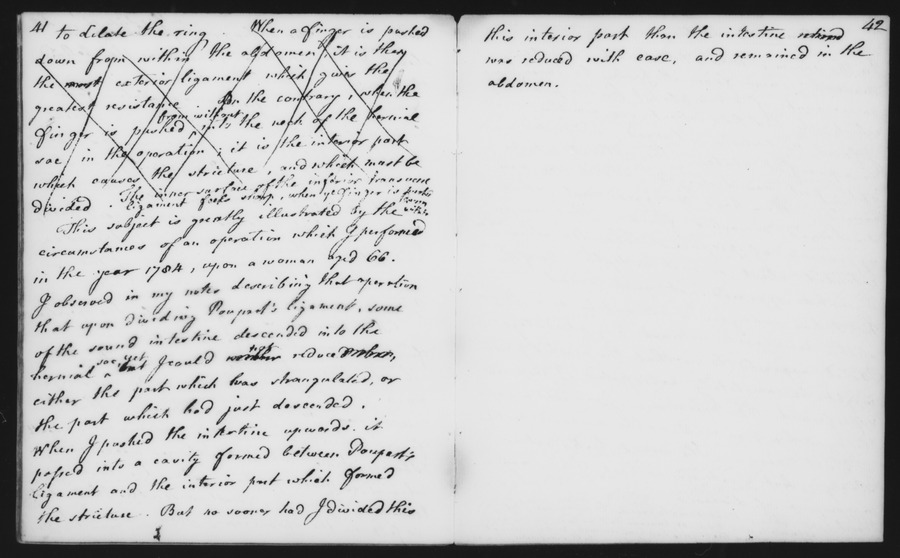 41
to dilate the ring. When a finger is pushed
down from within the abdomen, it is then
the most exterior ligament which gives the
greatest resistance. On the contrary, when the
from without
finger is pushed into the neck of the hernial
sac, in the operation; it is the interior part
which causes the stricture, and which must be
divided. The inner surface of the inferior transverse
ligament feels sharp, when ye finger is pushed
down within
This subject is greatly illustrated by the
circumstances of an operation which I performed
in the year 1784, upon a woman aged 66.
I observed in my notes describing that operation
that upon dividing Poupart's ligament, some
of the sound intestine descended into the
hernial sac, yet but I could not reduce
either the part which was strangulated, or
the part which had just descended.
When I pushed the intestine upwards, it
passed into a cavity formed between Poupart's
ligament and the interior part which formed
the stricture. But no sooner had I divided this
42
this interior part than the intestine
was reduced with ease, and remained in the
abdomen.